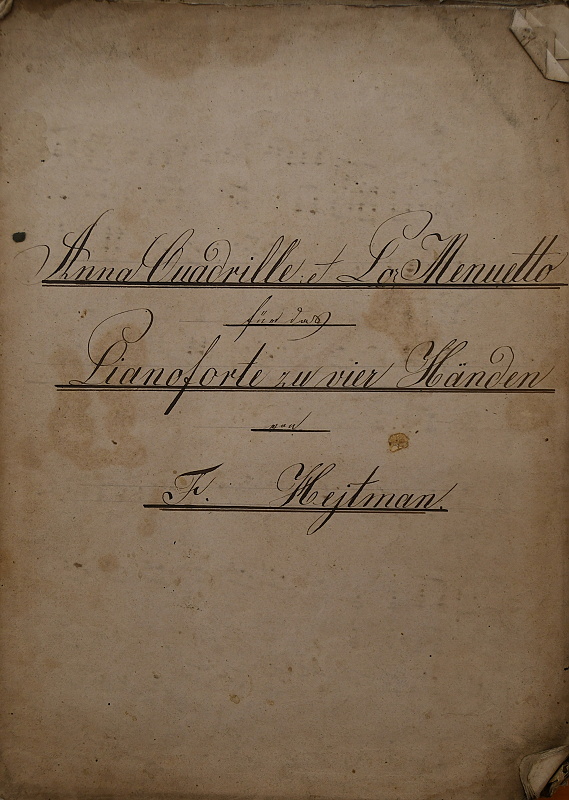 Anna Quadrille et La Menuetto
für das
Pianoforte zu vier Händen
von
F. Hejtman.